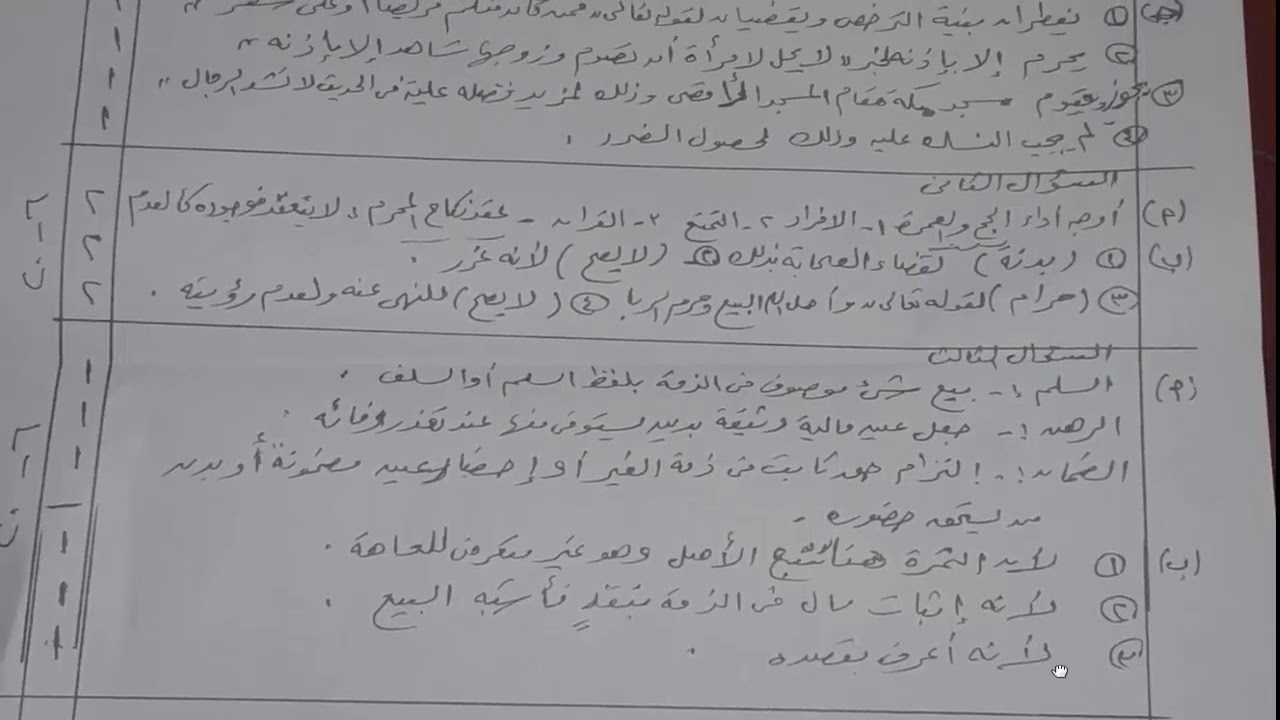 (ج) ① يفطران بنية الترخص ويقضيان لقوله تعالى "فمن كان منكم مريضا أو على سفر"
② يحرم إلا بإذنه لخبر "لا يحل لامرأة أن تصوم وزوجها شاهد إلا بإذنه"
③ يجوز ويقوم مسجد مكة مقام المسجد الأقصى وذلك لمزيد فضله عليه في الحديث لا تشد الرحال "
④ لم يجب النسك عليه وذلك لحصول الضرر .
السؤال الثاني
(م) أوجه أداء الحج والعمرة ١- الافراد ٢- التمتع ٣- القران - عقد نكاح المحرم : لا ينعقد فوجوده كالعدم
(ب) ① (بدنة) لقضاء الصحابة بذلك ② (لا يصح) لأنه غرر .
③ (حرام) لقوله تعالى "وأحل الله البيع وحرم الربا ④ (لا يصح) للنهى عنه ولعدم رؤيته .
السؤال الثالث
(م) السلم :- بيع شئ موصوف فى الذمة بلفظ السلم أو السلف .
الرهن :- جعل عين مالية وثيقة بدين يستوفى منها عند تعذر وفائه .
الضمان :- إلتزام حق ثابت فى ذمة الغير أو إحضار عين مضمونة أو بدن
من يستحق حضوره -
(ب) ① لأن الثمرة هنا تتبع الأصل وهو غير متعرض للعاهة .
② لأنه إثبات مال فى الذمة بنقد فأشبه البيع .
③ لأنه أعرف بقصده .